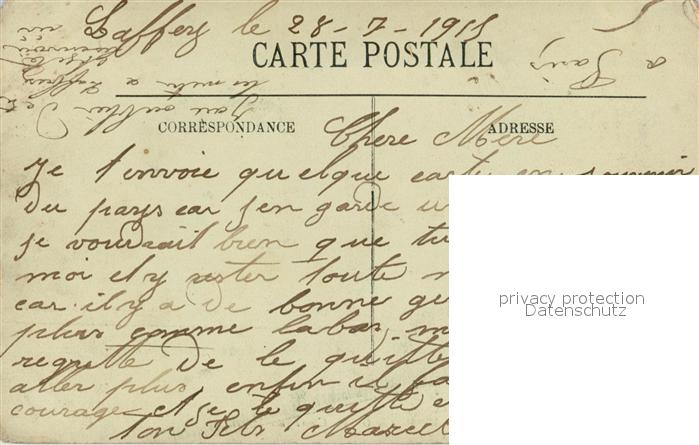 Laffery le 28-7-1915
CARTE POSTALE
a Paris
J'ai oublié de
CORRESPONDANCE
ADRESSE
Chere Mère
Je t'envoie quelque carte en souvenir
du pays car j'en garde u
je voudrait bien que tu
moi et y rester toute
car il y a de bonne ge
plus comme labas, m
regrette de le quitte
aller plus, enfin il fa
courage et je te quitte e
ton Fils Marcel
privacy protection
Datenschutz